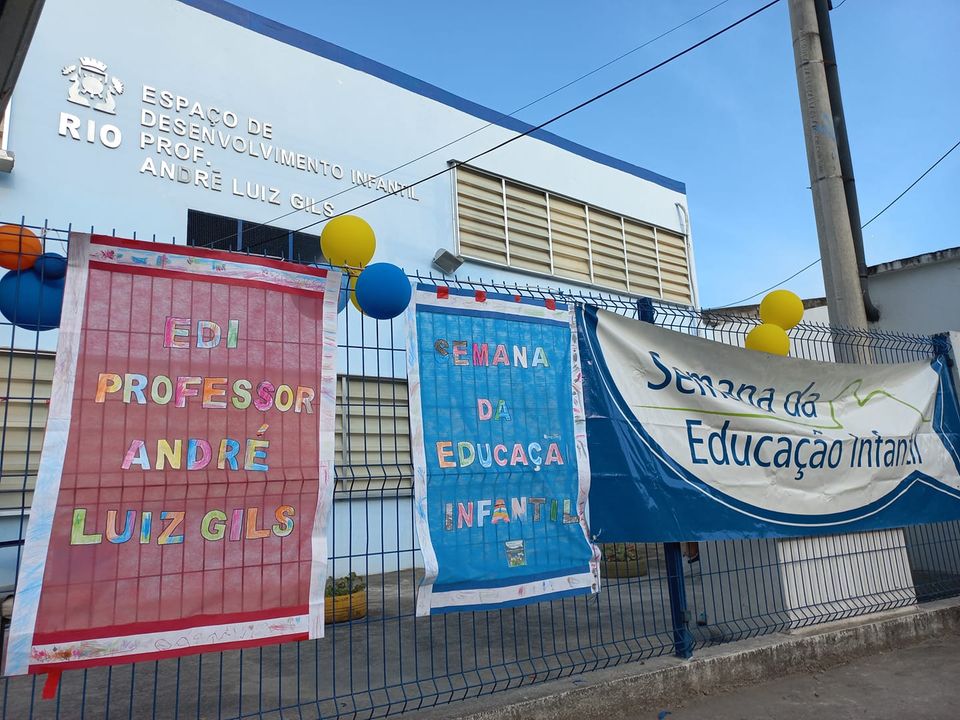 RIO
ESPAÇO DE
DESENVOLVIMENTO INFANTIL
PROF.
ANDRÉ LUIZ GILS
EDI
PROFESSOR
ANDRÉ
LUIZ GILS
SEMANA
DA
EDUCAÇA
INFANTIL
Semana da
Educação Infantil